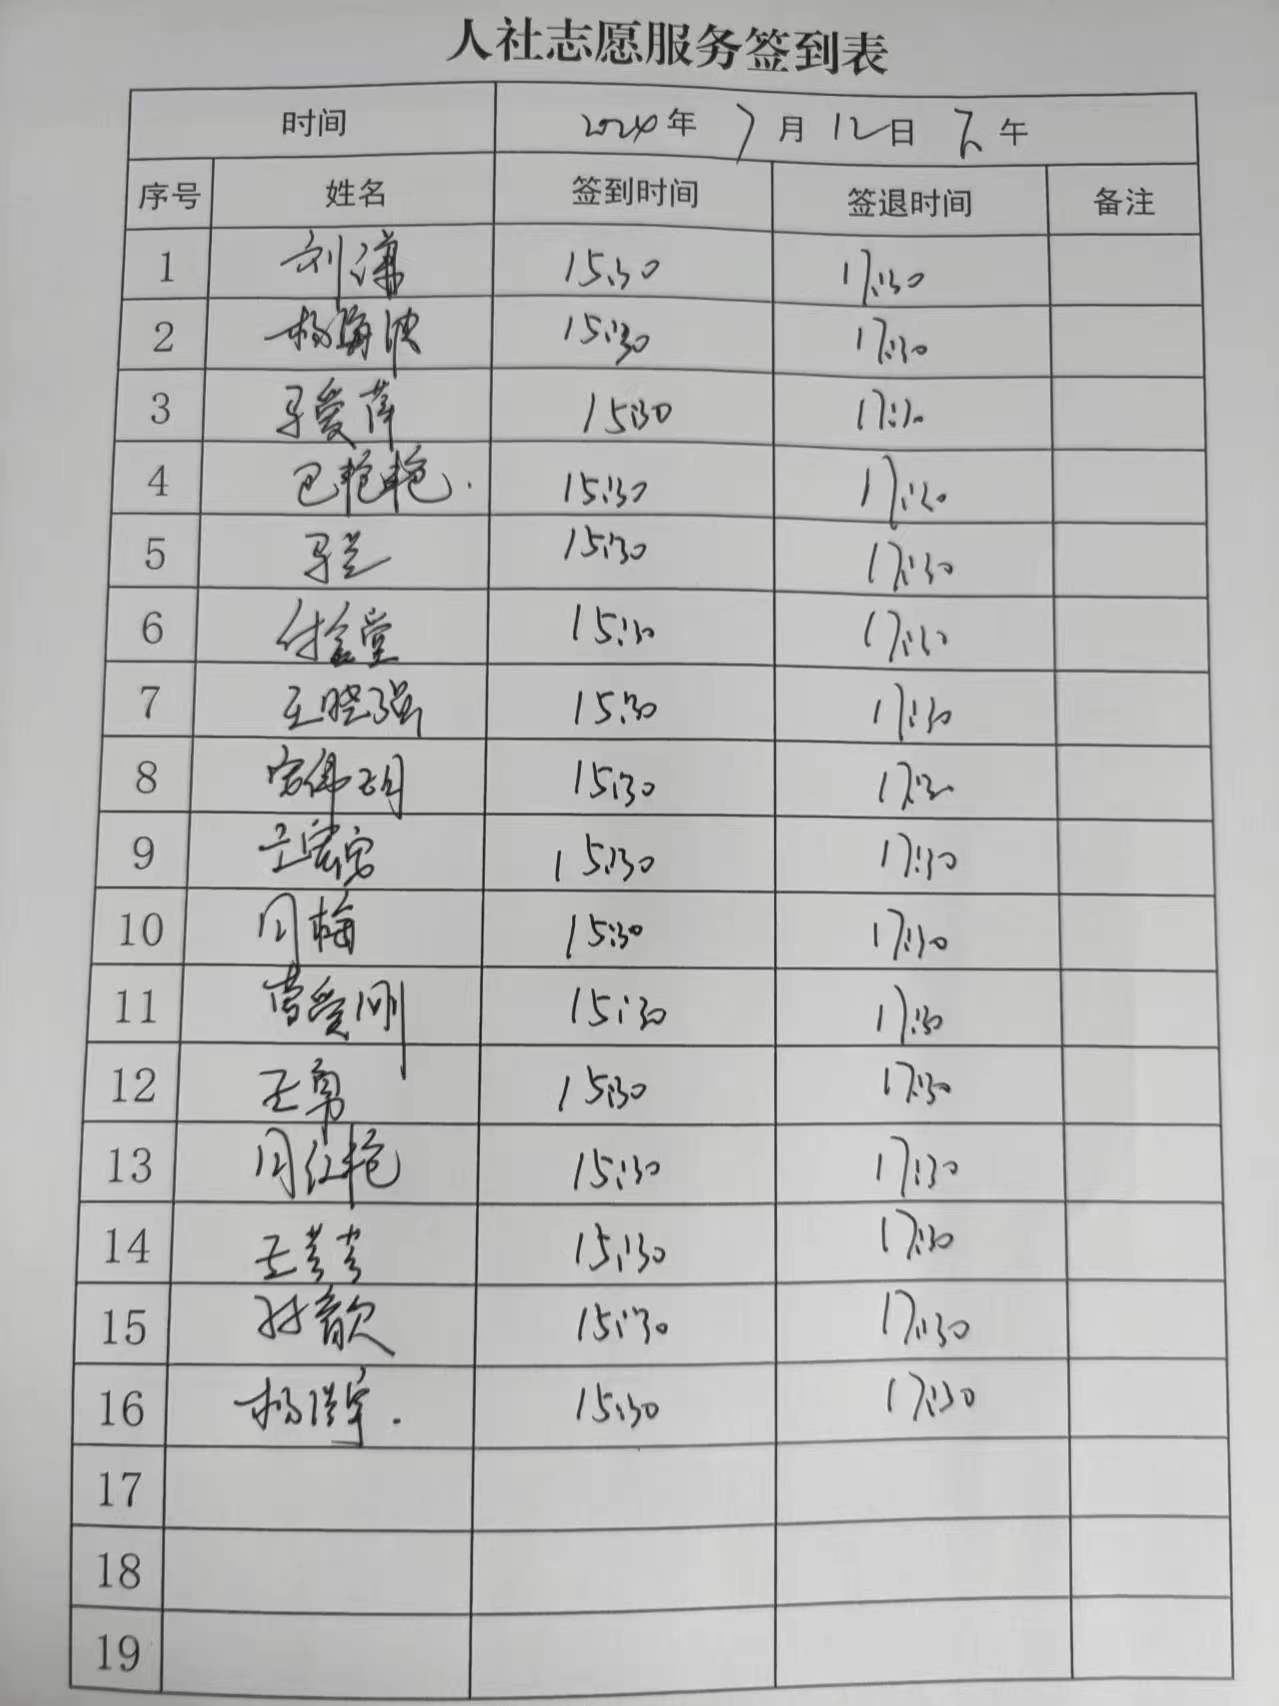 人社志愿服务签到表
时间 2024年 7月 12日 下午
序号 姓名 签到时间 签退时间 备注
1 刘谦 15:30 17:30
2 杨海波 15:30 17:30
3 马爱萍 15:30 17:30
4 巴艳艳. 15:30 17:30
5 马兰 15:30 17:30
6 付金堂 15:30 17:30
7 王晓强 15:30 17:30
8 15:30 17:30
9 15:30 17:30
10 周梅 15:30 17:30
11 曹爱刚 15:30 17:30
12 王勇 15:30 17:30
13 周红艳 15:30 17:30
14 王 15:30 17:30
15 孙歆 15:30 17:30
16 杨洪宇. 15:30 17:30
17
18
19